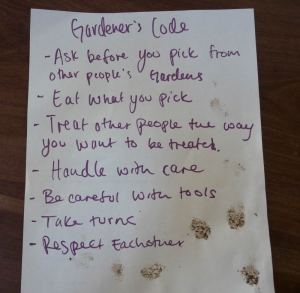 Gardener's Code
- Ask before you pick from
other people's Gardens
- Eat what you pick
- Treat other people the way
you want to be treated.
- Handle with care
- Be careful with tools
- Take turns
- Respect Eachother